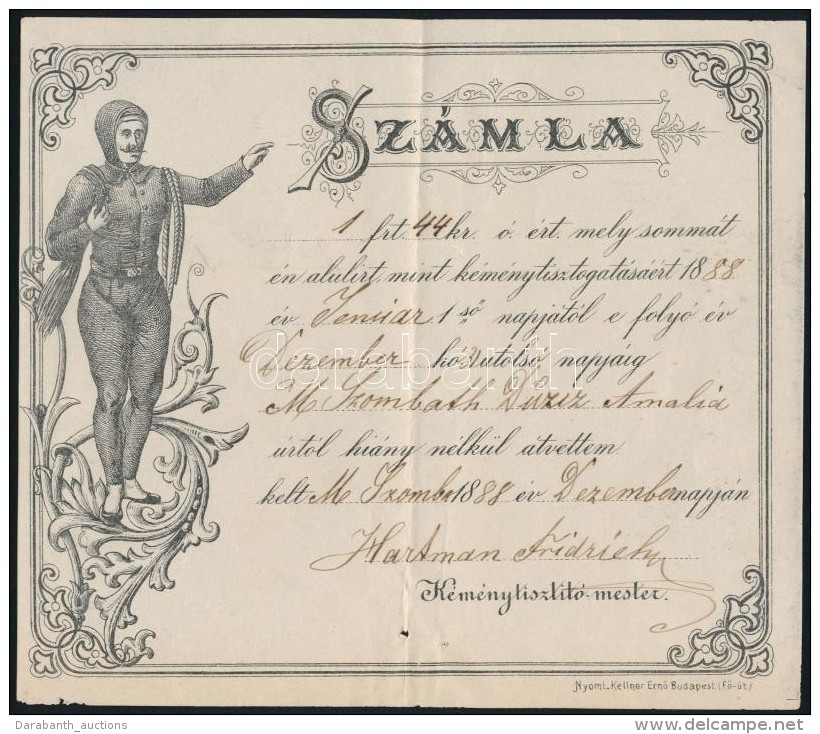 SZÁMLA
1 frt. 44 kr. ó. ért. mely sommát
én alulirt, mint kéménytisztogatásáért 1888
év Januar 1 ső napjától e folyó év
Dezember hó utolsó napjáig
M Szombath Amalia
úrtól hiány nélkül átvettem.
kelt M Szomb 1888 év Dezember napján
Hartman Fridrich
Kéménytisztitó-mester.
Nyomt. Kellner Ernő Budapest (Fő-út)
darabanth.com
Darabanth_auctions
delcampe.net